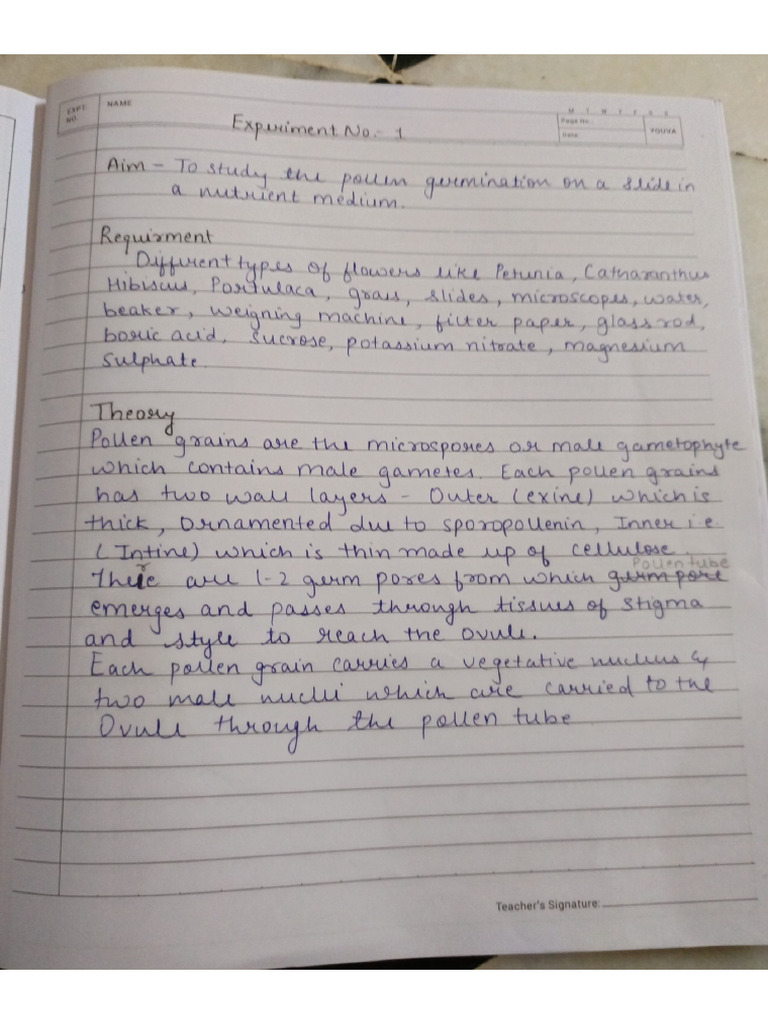 EXPT. NO.
NAME
M T W T F S S
Page No.:
Date:
YOUVA
Experiment No:- 1
Aim – To study the pollen germination on a slide in
a nutrient medium.
Requirment
Different types of flowers like Petunia, Catharanthus
Hibiscus, Portulaca, grass, slides, microscopes, water,
beaker, weigning machine, filter paper, glass rod,
boric acid, Sucrose, potassium nitrate, magnesium
sulphate.
Theory
Pollen grains are the microspores or male gametophyte
which contains male gametes. Each pollen grains
has two wall layers – Outer (exine) which is
thick, Ornamented due to sporopollenin, Inner i.e.
(Intine) which is thin made up of cellulose.
Pollen tube
There are 1-2 germ pores from which germ pore
emerges and passes through tissues of stigma
and style to reach the ovule.
Each pollen grain carries a vegetative nucleus &
two male nuclei which are carried to the
Ovule through the pollen tube
Teacher's Signature: